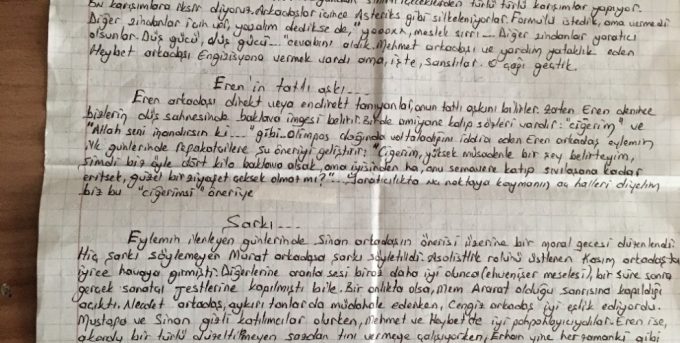 bu karışımlara iksir diyoruz. Arkadaşlar içince Asteriks gibi silkeleniyorlar. Formülü istedik, ama vermedi
Diğer zindanlar için de, yazalım dedikse de, "yoooxx, meslek sırrı... Diğer zindanlar yaratıcı
olsunlar. Düş gücü, düş gücü..." cevabını aldık. Mehmet arkadaşı ve yardım yataklık eden
Heybet arkadaşı Engizisyona vermek vardı ama, işte, şanslılar. O çağı geçtik.
Eren'in tatlı aşkı...
Eren arkadaşı direkt veya endirekt tanıyanlar, onun tatlı aşkını bilirler. Zaten Eren denince
bizlerin düş sahnesinde baklava imgesi belirir. Bir de amiyane kalıp sözleri vardır: "ciğerim" ve
"Allah seni inandırsın ki..." gibi. Olimpos dağında voltaladığını iddia eden Eren arkadaş eylemin
ilk günlerinde refakatçilere şu öneriyi geliştirir: "Ciğerim, yüksek müsadenle bir şey belirteyim,
şimdi biz öyle dört kilo baklava alsak, ama iyisinden ha, onu semavere katıp sıvılaşana kadar
eritsek, güzel bir ziyafet çeksek olmaz mı?"... Yaratıcılıkta uç noktaya kaymanın aç halleri diyelim
biz bu "ciğerimsi" öneriye
Şarkı...
Eylemin ilerleyen günlerinde Sinan arkadaşın önerisi üzerine bir moral gecesi düzenlendi.
Hiç şarkı söylemeyen Murat arkadaşa şarkı söyletildi. Asolistlik rolünü üstlenen Kasım arkadaş
iyice havaya girmişti. Diğerlerine oranla sesi biraz daha iyi olunca (ehvenişer meselesi), bir süre sonra
gerçek sanatçı jestlerine kapılmıştı bile. Bir anlıkta olsa, Mem Ararat olduğu sanrısına kapıldığı
açıktı. Necdet arkadaş, aykırı tonlarda müdahale ederken, Cengiz arkadaş iyi eşlik ediyordu.
Mustafa ve Sinan gizli katılımcılar olurken, Mehmet ve Heybet'de iyi pohpohlayıcıydılar. Eren ise,
akordu bir türlü düzeltilmeyen sazdan tını vermeye çalışıyorken, Erhan yine her zamanki gibi